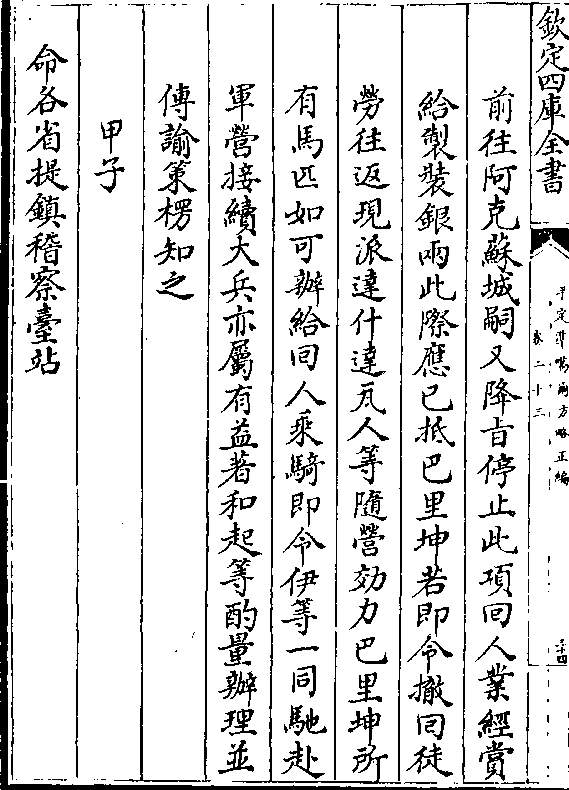 欽定四庫全書
平定準噶爾方略正編
卷二十三
三十四
前往阿克蘇城嗣又降旨停止此項回人業經賞
給製裝銀兩此際應已抵巴里坤若即令撤回徒
勞往返現派達什達瓦人等隨營効力巴里坤所
有馬匹如可辦給回人乘騎即令伊等一同馳赴
軍營接續大兵亦屬有益著和起等酌量辦理並
傳諭策楞知之
甲子
命各省提鎮稽察臺站